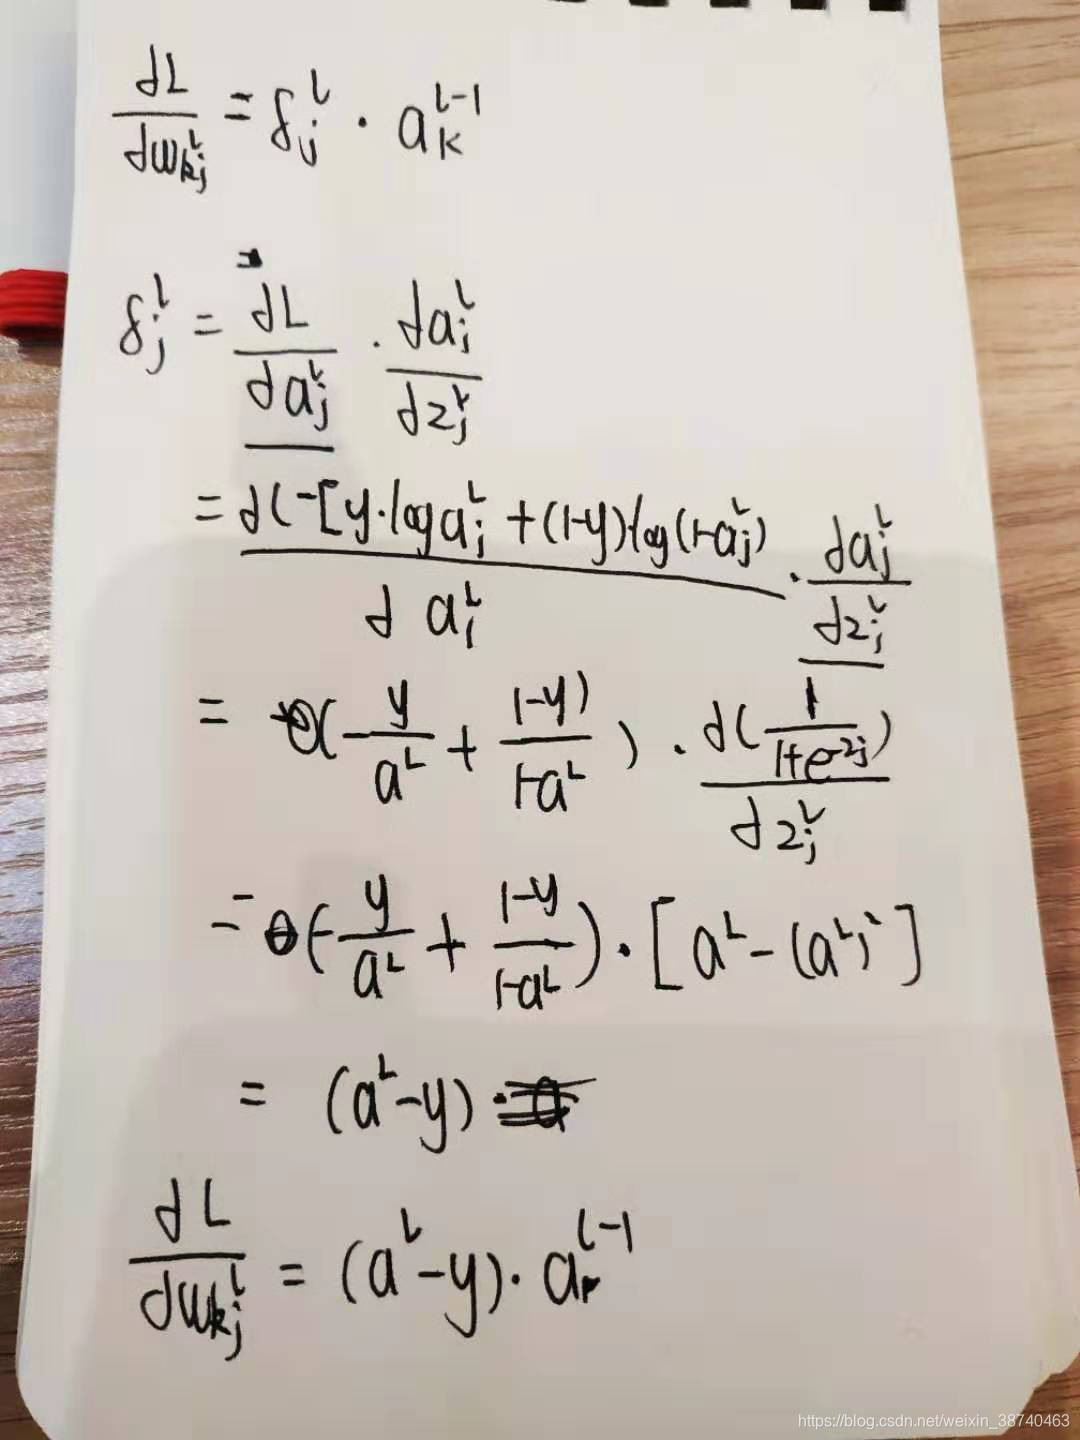 dL/dw_{kj}^L = δ_j^L · a_k^{L-1}
δ_j^L = dL/da_j^L · da_j^L/dz_j^L
= d(-[y·log a_j^L + (1-y)log(1-a_j^L)/d a_j^L · da_j^L/dz_j^L
= (-y/a^L + 1-y)/1-a^L) · d(1/1+e^{-z_j})/dz_j^L
= (-y/a^L + 1-y/1-a^L) · [a^L - (a^L)^2]
= (a^L - y)
dL/dw_{kj}^L = (a^L - y) · a_k^{L-1}
https://blog.csdn.net/weixin_38740463